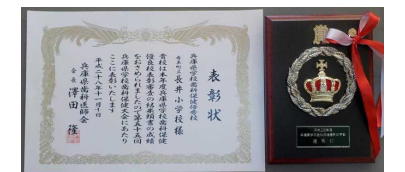 表彰状
兵庫県学校歯科保健優良校
長井小学校様
貴校は本年度兵庫県学校歯科保健
優良校表彰審査の結果頭書の成績
をおさめられましたので第五十五回
兵庫県学校歯科保健大会にあたり
ここに表彰いたします
平成二十八年十一月十日
兵庫県歯科医師会
会長 澤田 隆